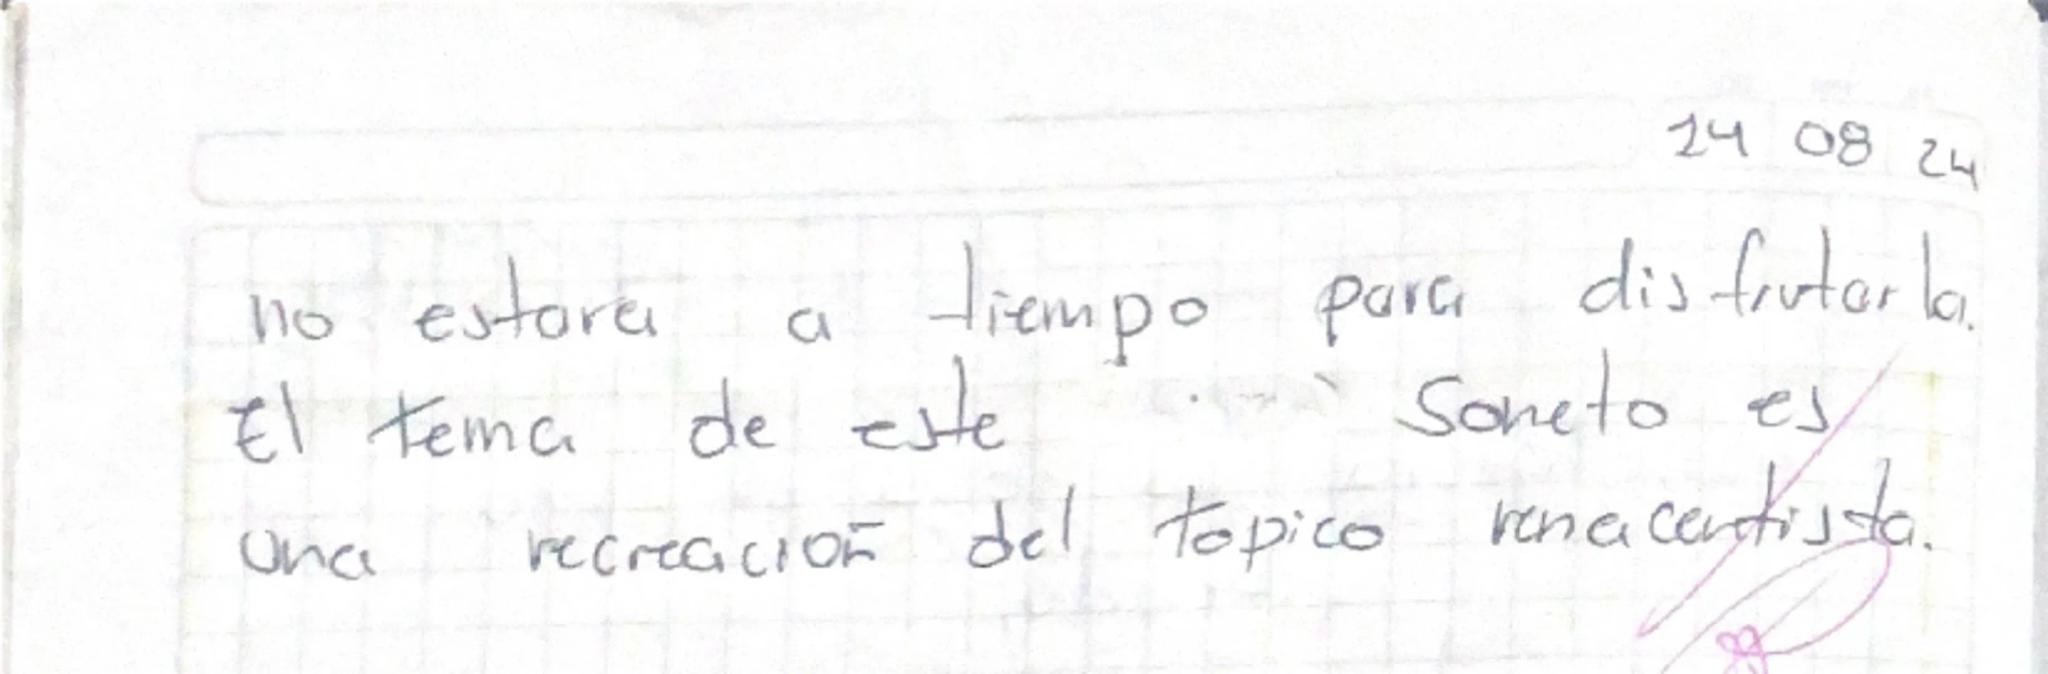 24 08 24
no estara a tiempo para disfrutarla.
El tema de este Soneto es
una recreación del topico renacentista.